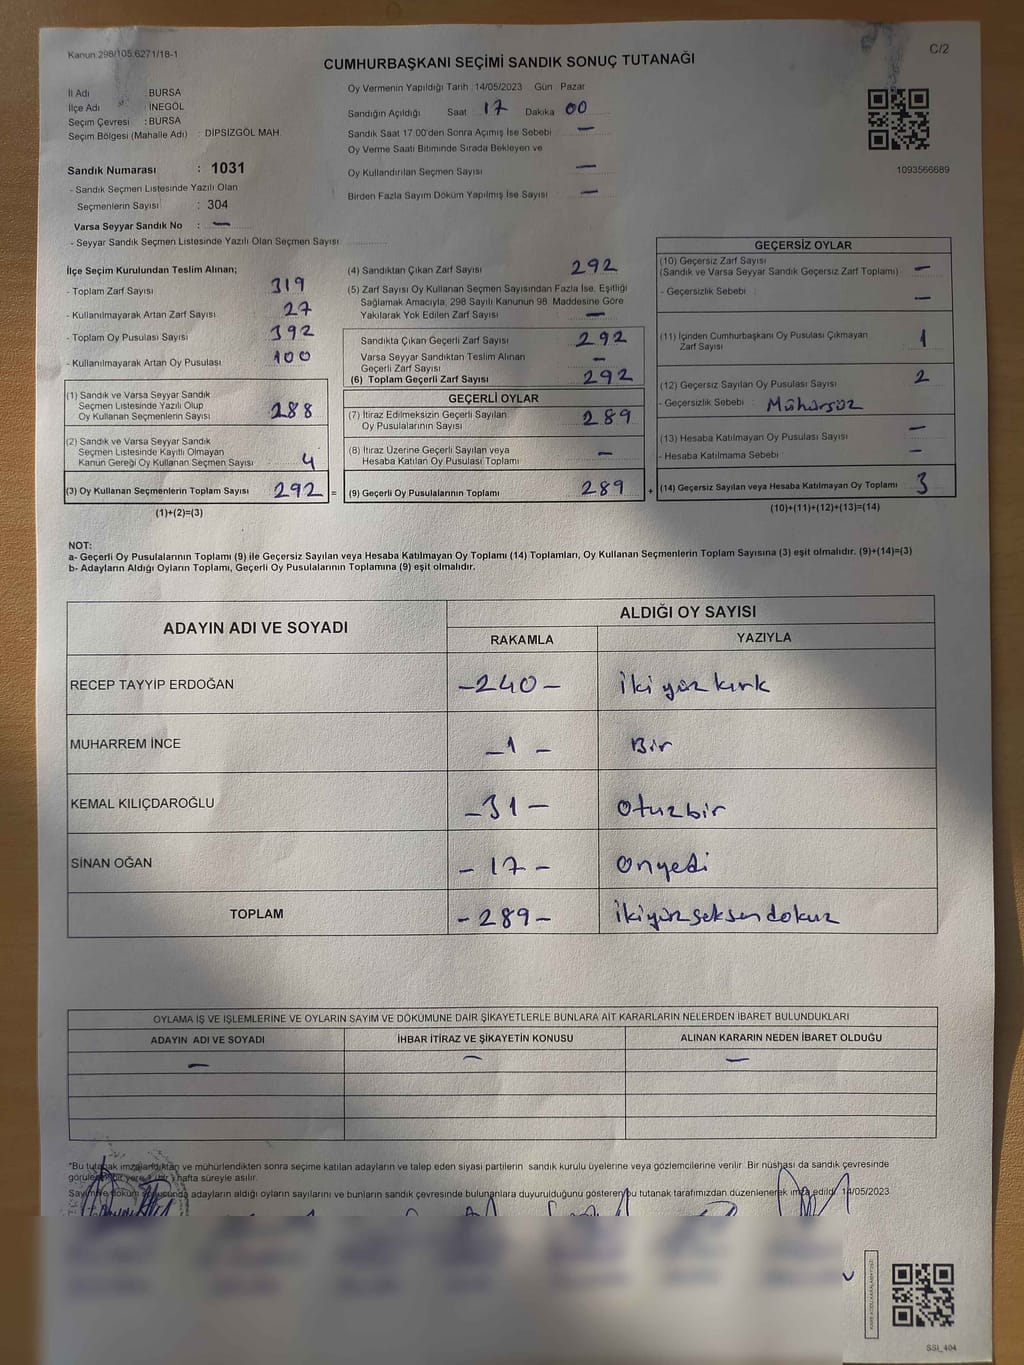 Kanun 298/105.6271/18-1
C/2
CUMHURBAŞKANI SEÇİMİ SANDIK SONUÇ TUTANAĞI
İl Adı : BURSA
İlçe Adı : İNEGÖL
Seçim Çevresi : BURSA
Seçim Bölgesi (Mahalle Adı) : DİPSİZGÖL MAH.
Oy Vermenin Yapıldığı Tarih 14/05/2023 Gün Pazar
Sandığın Açıldığı Saat 17 Dakika 00
Sandık Saat 17.00'den Sonra Açımış İse Sebebi —
Oy Verme Saati Bitiminde Sırada Bekleyen ve
Oy Kullandırılan Seçmen Sayısı —
Birden Fazla Sayım Döküm Yapılmış İse Sayısı —
1093566689
Sandık Numarası : 1031
- Sandık Seçmen Listesinde Yazılı Olan
Seçmenlerin Sayısı : 304
Varsa Seyyar Sandık No : —
- Seyyar Sandık Seçmen Listesinde Yazılı Olan Seçmen Sayısı
İlçe Seçim Kurulundan Teslim Alınan;
- Toplam Zarf Sayısı 319
- Kullanılmayarak Artan Zarf Sayısı 27
- Toplam Oy Pusulası Sayısı 392
- Kullanılmayarak Artan Oy Pusulası 100
(1) Sandık ve Varsa Seyyar Sandık
Seçmen Listesinde Yazılı Olup
Oy Kullanan Seçmenlerin Sayısı 288
(2) Sandık ve Varsa Seyyar Sandık
Seçmen Listesinde Kayıtlı Olmayan
Kanun Gereği Oy Kullanan Seçmen Sayısı 4
(3) Oy Kullanan Seçmenlerin Toplam Sayısı 292 =
(1)+(2)=(3)
(4) Sandıktan Çıkan Zarf Sayısı 292
(5) Zarf Sayısı Oy Kullanan Seçmen Sayısından Fazla İse, Eşitliği
Sağlamak Amacıyla, 298 Sayılı Kanunun 98. Maddesine Göre
Yakılarak Yok Edilen Zarf Sayısı —
Sandıkta Çıkan Geçerli Zarf Sayısı 292
Varsa Seyyar Sandıktan Teslim Alınan
Geçerli Zarf Sayısı —
(6) Toplam Geçerli Zarf Sayısı 292
GEÇERLİ OYLAR
(7) İtiraz Edilmeksizin Geçerli Sayılan
Oy Pusulalarının Sayısı 289
(8) İtiraz Üzerine Geçerli Sayılan veya
Hesaba Katılan Oy Pusulası Toplamı —
(9) Geçerli Oy Pusulalarının Toplamı 289 +
GEÇERSİZ OYLAR
(10) Geçersiz Zarf Sayısı
(Sandık ve Varsa Seyyar Sandık Geçersiz Zarf Toplamı) —
- Geçersizlik Sebebi : —
(11) İçinden Cumhurbaşkanı Oy Pusulası Çıkmayan
Zarf Sayısı 1
(12) Geçersiz Sayılan Oy Pusulası Sayısı 2
- Geçersizlik Sebebi : Mühürsüz
(13) Hesaba Katılmayan Oy Pusulası Sayısı —
- Hesaba Katılmama Sebebi : —
(14) Geçersiz Sayılan veya Hesaba Katılmayan Oy Toplamı 3
(10)+(11)+(12)+(13)=(14)
NOT:
a- Geçerli Oy Pusulalarının Toplamı (9) ile Geçersiz Sayılan veya Hesaba Katılmayan Oy Toplamı (14) Toplamları, Oy Kullanan Seçmenlerin Toplam Sayısına (3) eşit olmalıdır. (9)+(14)=(3)
b- Adayların Aldığı Oyların Toplamı, Geçerli Oy Pusulalarının Toplamına (9) eşit olmalıdır.
ADAYIN ADI VE SOYADI
ALDIĞI OY SAYISI
RAKAMLA YAZIYLA
RECEP TAYYİP ERDOĞAN -240- İki yüz kırk
MUHARREM İNCE -1- Bir
KEMAL KILIÇDAROĞLU -31- Otuzbir
SİNAN OĞAN -17- Onyedi
TOPLAM -289- İkiyüz seksen dokuz
OYLAMA İŞ VE İŞLEMLERİNE VE OYLARIN SAYIM VE DÖKÜMÜNE DAİR ŞİKAYETLERLE BUNLARA AİT KARARLARIN NELERDEN İBARET BULUNDUKLARI
ADAYIN ADI VE SOYADI İHBAR İTİRAZ VE ŞİKAYETİN KONUSU ALINAN KARARIN NEDEN İBARET OLDUĞU
— — —
*Bu tutanak imzalandıktan ve mühürlendikten sonra seçime katılan adayların ve talep eden siyasi partilerin sandık kurulu üyelerine veya gözlemcilerine verilir. Bir nüshası da sandık çevresinde
hafta süreyle asılır.
adayların aldığı oyların sayılarını ve bunların sandık çevresinde bulunanlara duyurulduğunu gösteren bu tutanak tarafımızdan düzenlenerek imza edildi. 14/05/2023
SSI_404